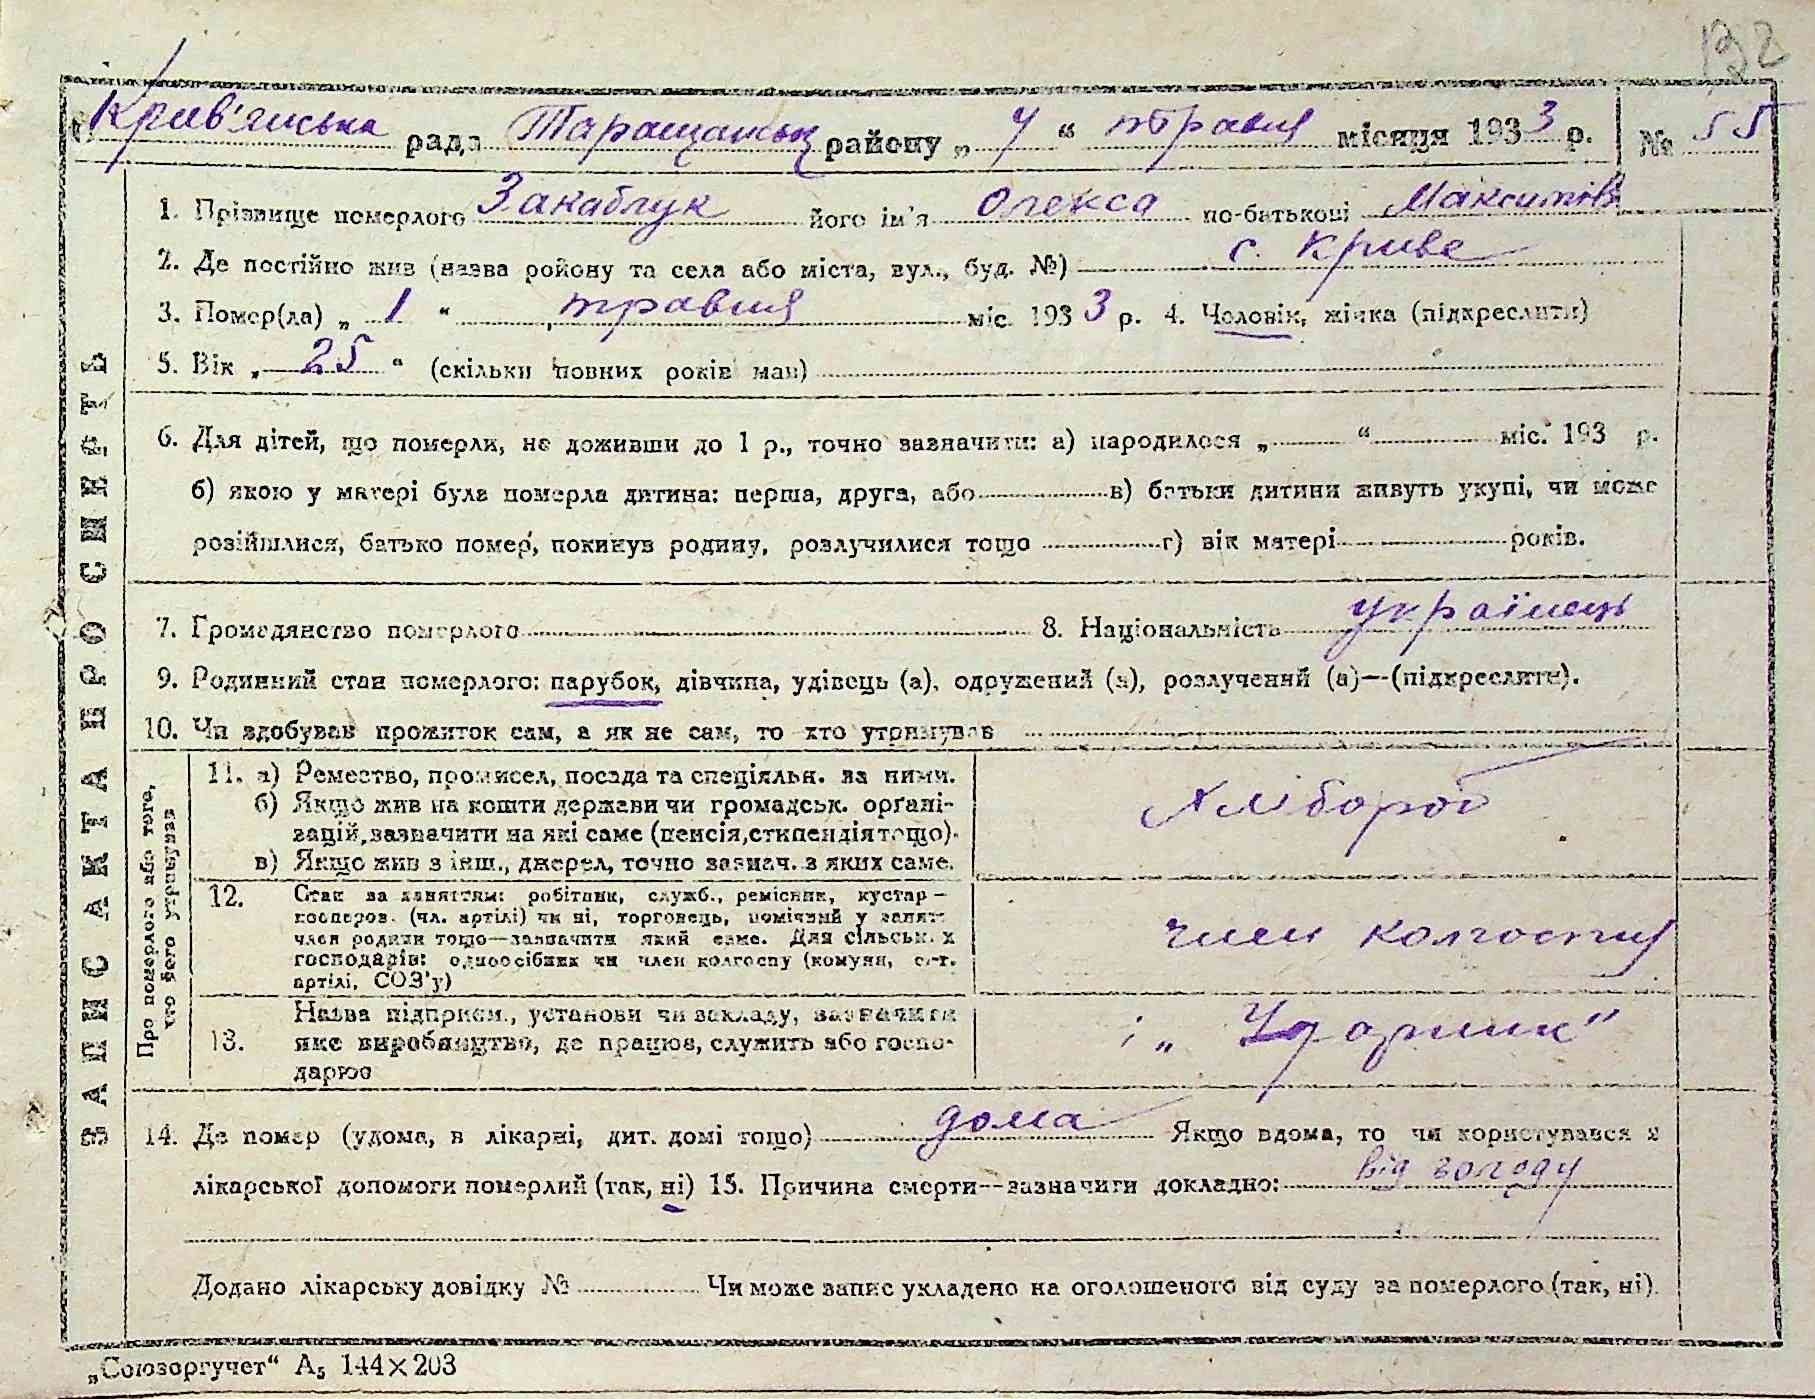 132
Крив'янська рада Таращанськ району „ 7 “ травня місяця 1933 р. № 55
1. Прізвище померлого Закаблук його ім'я Олекса по-батькові Максимов
2. Де постійно жив (назва ройону та села або міста, вул., буд. №) с. Криве
3. Помер(ла) „ 1 “ травня міс. 1933 р. 4. Чоловік, жінка (підкреслити)
5. Вік „ 25 “ (скільки повних років мав)
6. Для дітей, що померли, не доживши до 1 р., точно зазначити: а) народилося „ “ міс. 193 р.
б) якою у матері була померла дитина: перша, друга, або в) батьки дитини живуть укупі, чи може
розійшлися, батько помер, покинув родину, розлучилися тощо г) вік матері років.
7. Громадянство померлого 8. Національність українець
9. Родинний стан померлого: парубок, дівчина, удівець (а), одружений (а), розлучений (а)—(підкреслити).
10. Чи здобував прожиток сам, а як не сам, то хто утримував
ЗАПИС АКТА ПРО СМЕРТЬ
Про померлого або того, хто його утримував
11. а) Ремество, промисел, посада та спеціяльн. за ними.
б) Якщо жив на кошти держави чи громадськ. орґані-
зацій, зазначити на які саме (пенсія, стипендія тощо).
в) Якщо жив з інш., джерел, точно зазнач. з яких саме.
Хлібороб
12. Стан за заняттям: робітник, служб., ремісник, кустар—
кооперов. (чл. артілі) чи ні, торговець, помічний у занят.
член родини тощо—зазначити який саме. Для сільськ. х
господарів: одноосібник чи член колгоспу (комуни, с.-г.
артілі, СОЗ'у)
член колгоспу
13. Назва підприєм., установи чи закладу, зазначити
яке виробництво, де працює, служить або госпо-
дарює
і „Ударник“
14. Де помер (удома, в лікарні, дит. домі тощо) дома Якщо вдома, то чи користувався з
лікарської допомоги померлий (так, ні) 15. Причина смерти—зазначити докладно: від голоду
Додано лікарську довідку № Чи може запис укладено на оголошеного від суду за померлого (так, ні).
„Союзоргучет“ А5 144×203